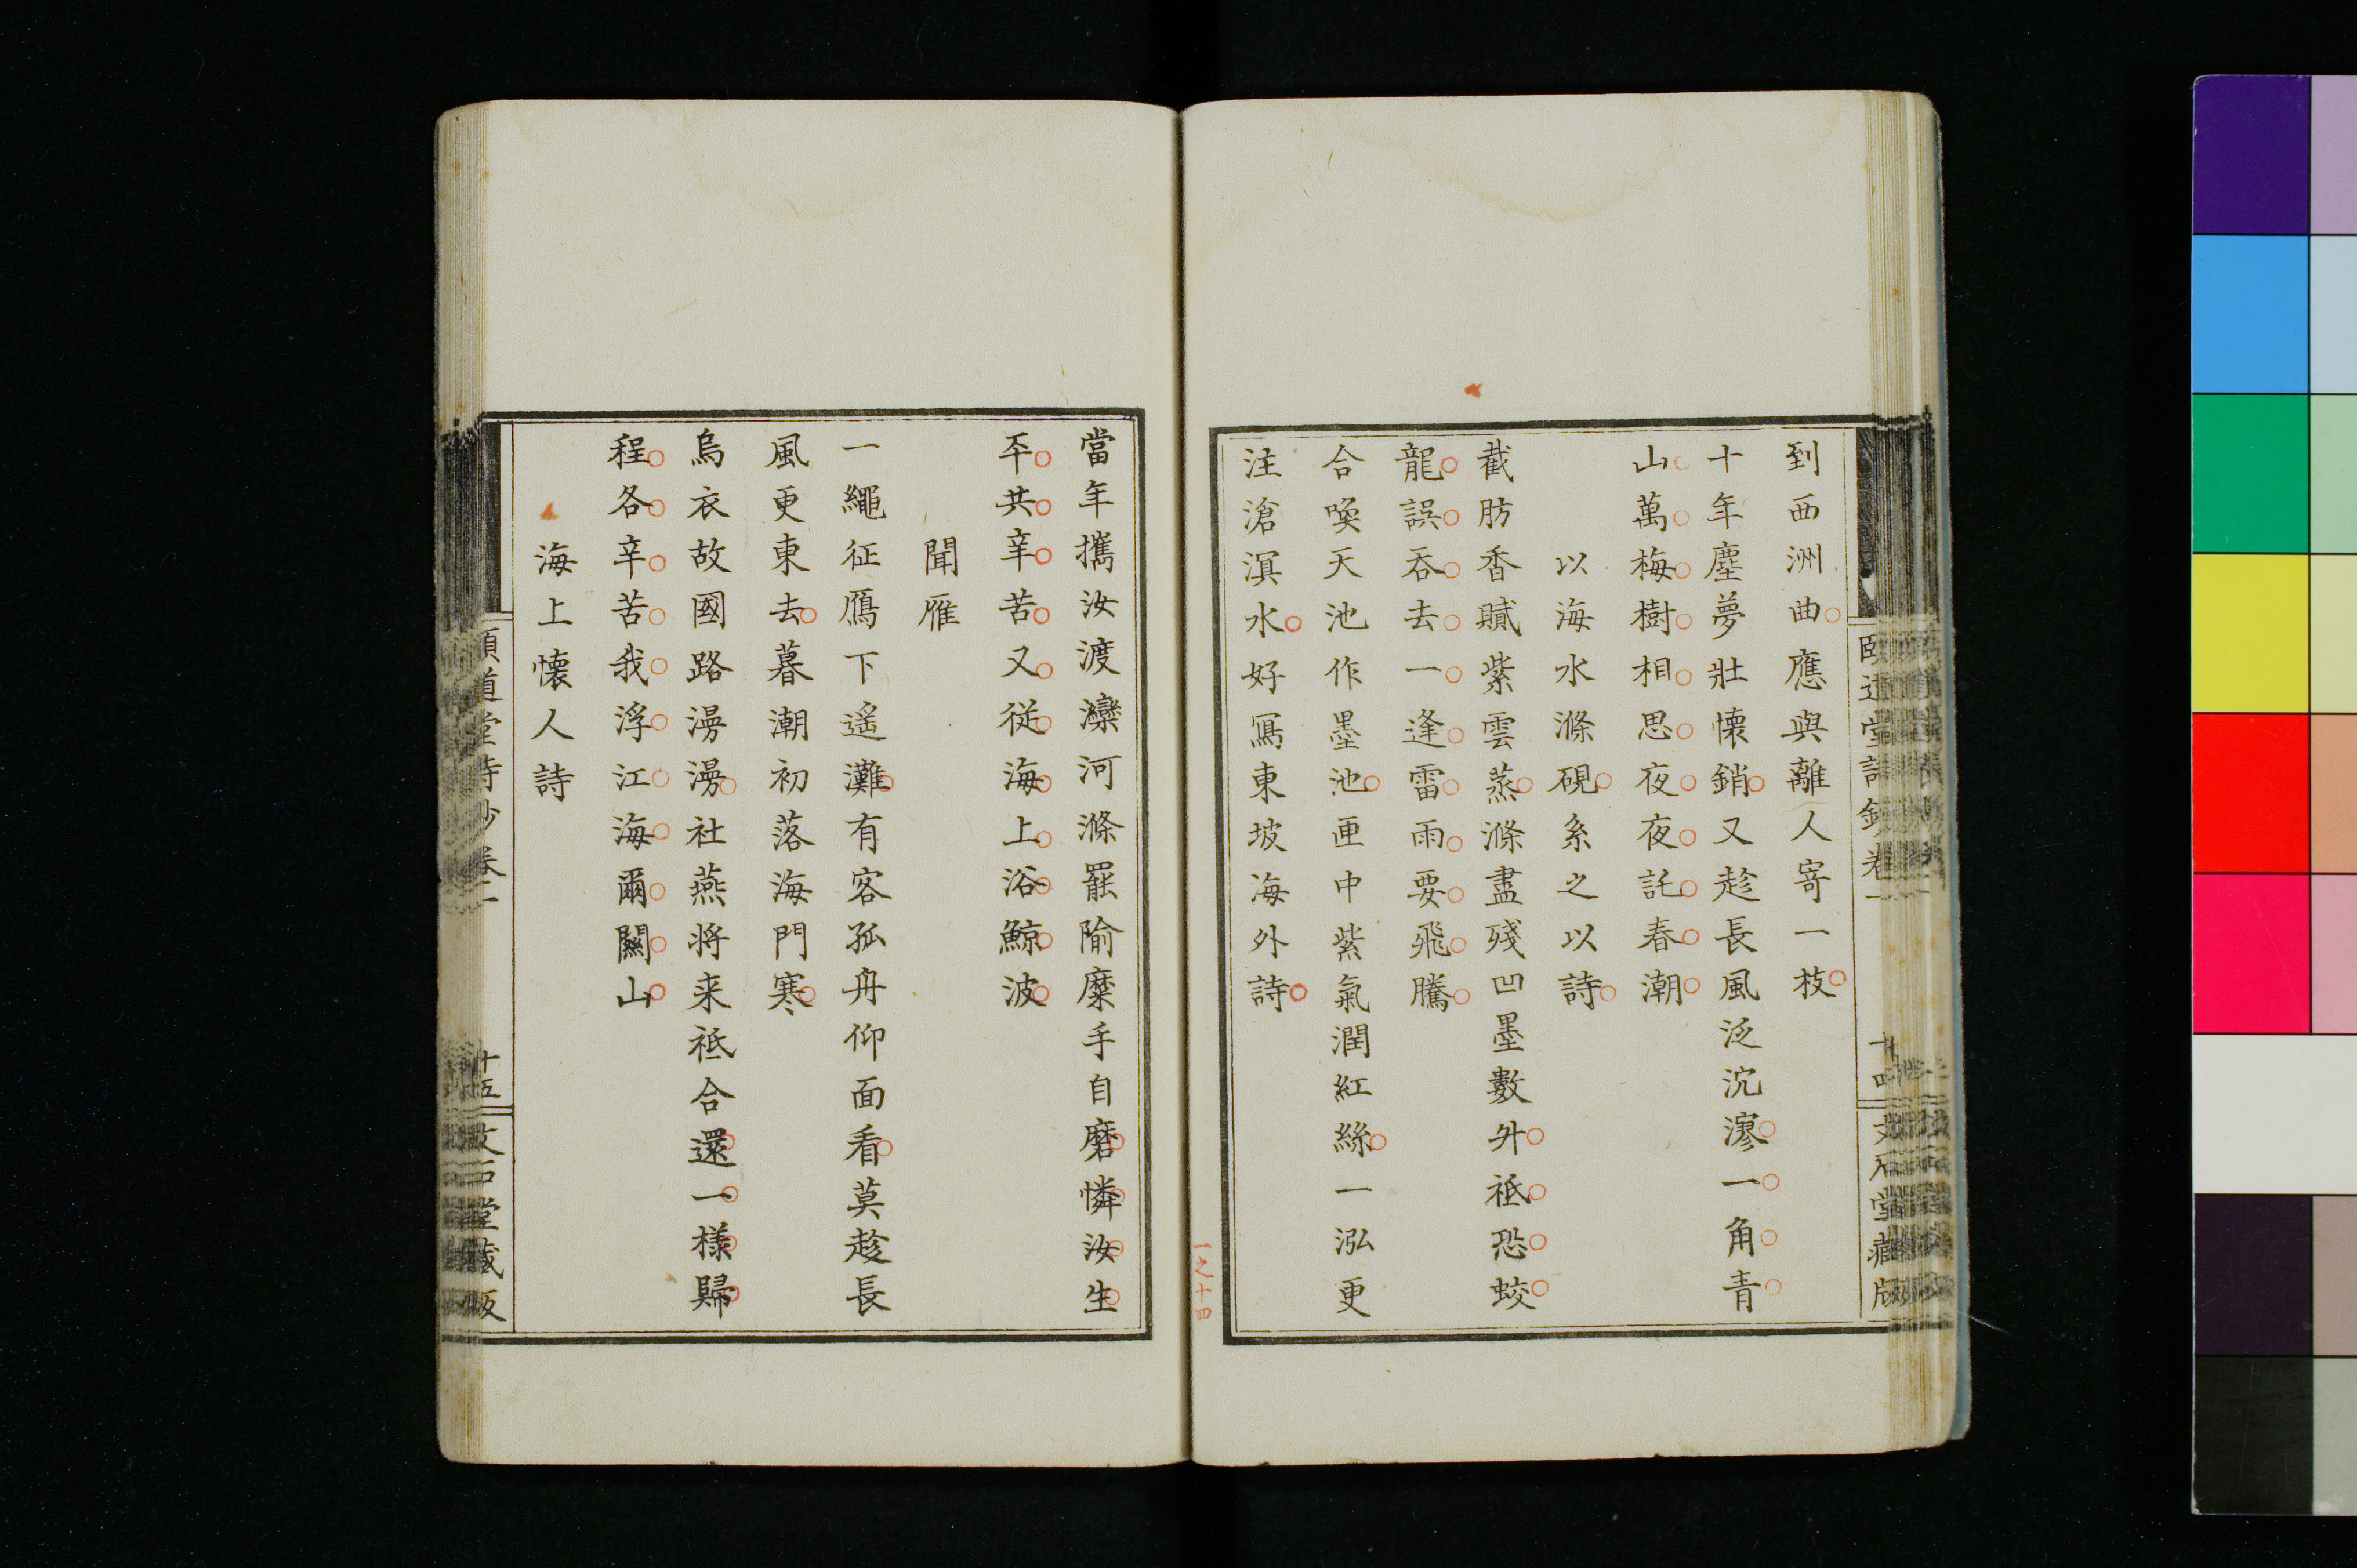 到西洲曲應與離人寄一枝
十年塵夢壯懷銷又趁長風泛沆瀣一角青
山萬梅樹相思夜夜託春潮
以海水滌硯系之以詩
截肪香膩紫雲蒸滌盡殘凹墨數升祗恐蛟
龍誤吞去一逢雷雨要飛騰
合喚天池作墨池匣中紫氣潤紅絲一泓更
注滄溟水好寫東坡海外詩
頤道堂詩鈔卷一
十四
文石堂藏版
一之十四
當年攜汝渡灤河滌罷隃糜手自磨憐汝生
平共辛苦又從海上浴鯨波
聞雁
一繩征鴈下遙灘有客孤舟仰面看莫趁長
風更東去暮潮初落海門寒
烏衣故國路漫漫社燕將來祗合還一樣歸
程各辛苦我浮江海爾關山
海上懷人詩
頤道堂詩鈔卷二
十五
文石堂藏版